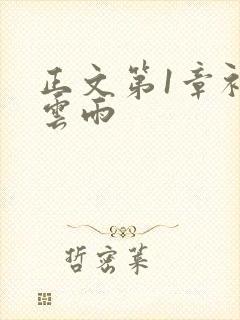 正文第1章初
雲雨
哲蜜莱